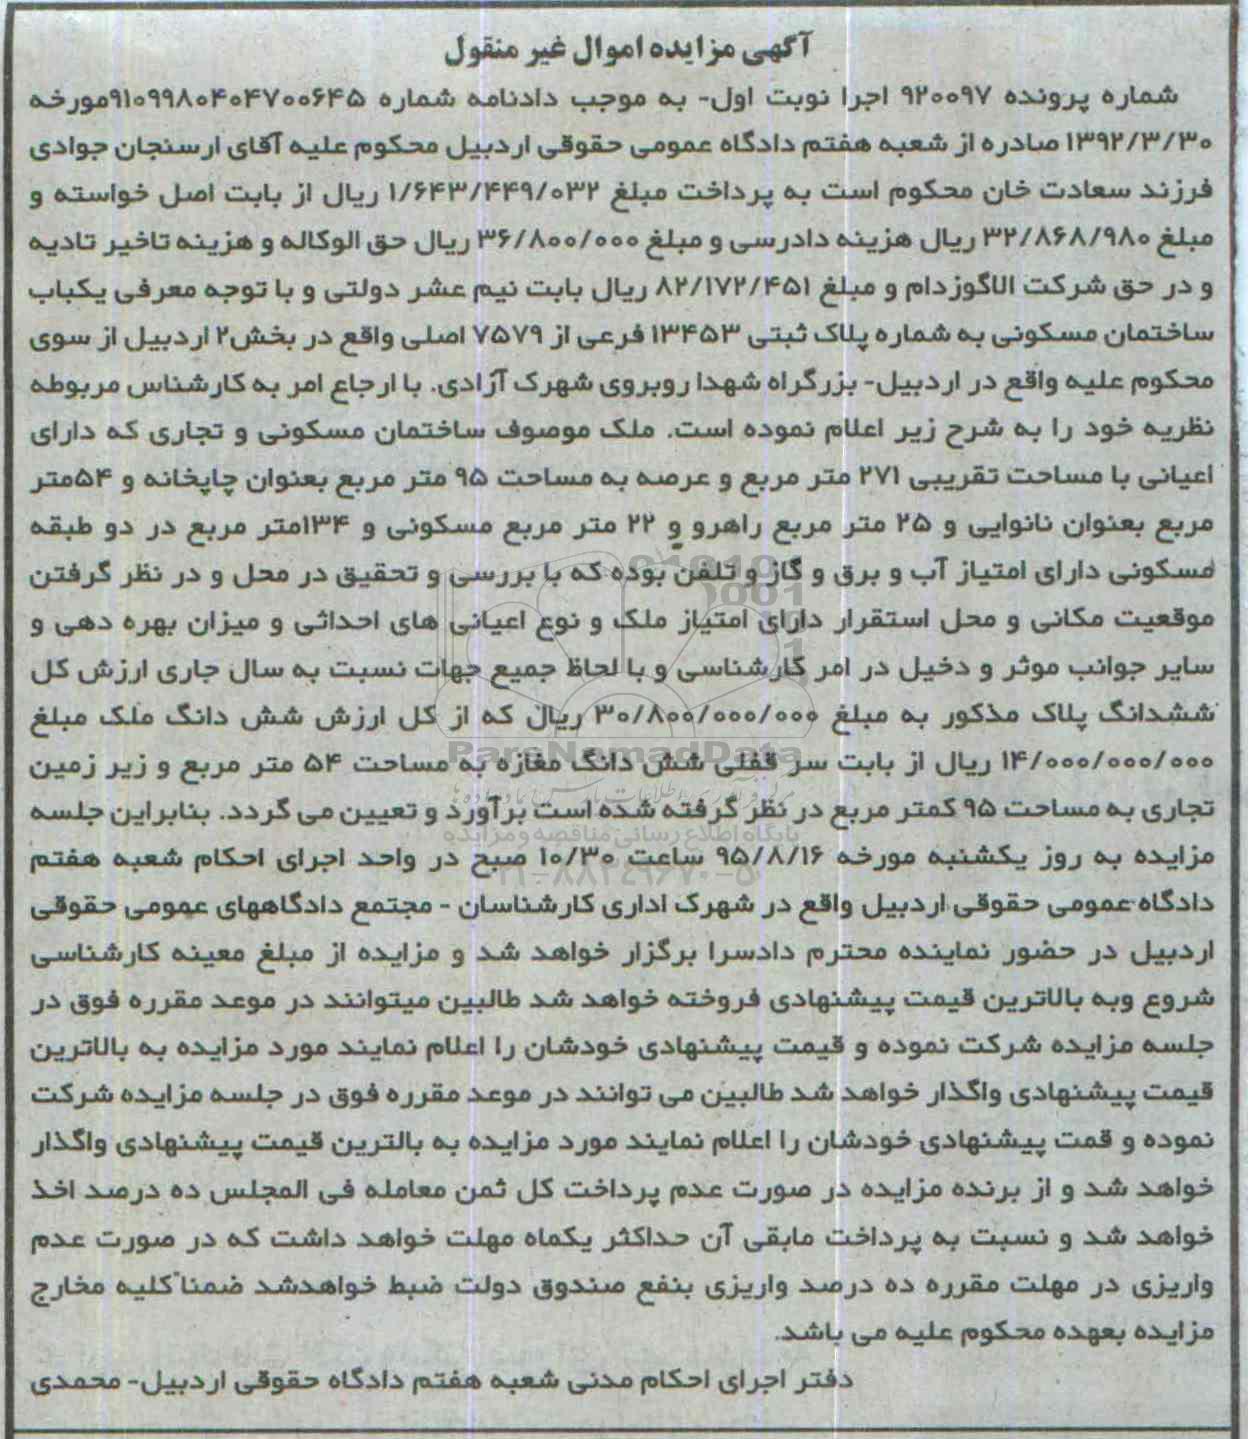 آگهی مزایده اموال غیر منقول
شماره پرونده ۹۲۰۰۹۷ اجرا نوبت اول- به موجب دادنامه شماره ۹۱۰۹۹۸۰۴۰۴۷۰۰۶۴۵مورخه
۱۳۹۲/۳/۳۰ صادره از شعبه هفتم دادگاه عمومی حقوقی اردبیل محکوم علیه آقای ارسنجان جوادی
فرزند سعادت خان محکوم است به پرداخت مبلغ ۱/۶۴۳/۴۴۹/۰۳۲ ریال از بابت اصل خواسته و
مبلغ ۳۲/۸۶۸/۹۸۰ ریال هزینه دادرسی و مبلغ ۳۶/۸۰۰/۰۰۰ ریال حق الوکاله و هزینه تاخیر تادیه
و در حق شرکت الاگوزدام و مبلغ ۸۲/۱۷۲/۴۵۱ ریال بابت نیم عشر دولتی و با توجه معرفی یکباب
ساختمان مسکونی به شماره پلاک ثبتی ۱۳۴۵۳ فرعی از ۷۵۷۹ اصلی واقع در بخش۲ اردبیل از سوی
محکوم علیه واقع در اردبیل- بزرگراه شهدا روبروی شهرک آزادی. با ارجاع امر به کارشناس مربوطه
نظریه خود را به شرح زیر اعلام نموده است. ملک موصوف ساختمان مسکونی و تجاری که دارای
اعیانی با مساحت تقریبی ۲۷۱ متر مربع و عرصه به مساحت ۹۵ متر مربع بعنوان چاپخانه و ۵۴متر
مربع بعنوان نانوایی و ۲۵ متر مربع راهرو و ۲۲ متر مربع مسکونی و ۱۳۴متر مربع در دو طبقه
مسکونی دارای امتیاز آب و برق و گاز و تلفن بوده که با بررسی و تحقیق در محل و در نظر گرفتن
موقعیت مکانی و محل استقرار دارای امتیاز ملک و نوع اعیانی های احداثی و میزان بهره دهی و
سایر جوانب موثر و دخیل در امر کارشناسی و با لحاظ جمیع جهات نسبت به سال جاری ارزش کل
ششدانگ پلاک مذکور به مبلغ ۳۰/۸۰۰/۰۰۰/۰۰۰ ریال که از کل ارزش شش دانگ ملک مبلغ
ParsNamadData
۱۴/۰۰۰/۰۰۰/۰۰۰ ریال از بابت سر قفلی شش دانگ مغازه به مساحت ۵۴ متر مربع و زیر زمین
تجاری به مساحت ۹۵ کمتر مربع در نظر گرفته شده است برآورد و تعیین می گردد. بنابراین جلسه
پایگاه اطلاع رسانی مناقصه و مزایده
مزایده به روز یکشنبه مورخه ۹۵/۸/۱۶ ساعت ۱۰/۳۰ صبح در واحد اجرای احکام شعبه هفتم
۰۲۱-۸۸۳۴۹۶۷۰-۵
دادگاه عمومی حقوقی اردبیل واقع در شهرک اداری کارشناسان - مجتمع دادگاههای عمومی حقوقی
اردبیل در حضور نماینده محترم دادسرا برگزار خواهد شد و مزایده از مبلغ معینه کارشناسی
شروع وبه بالاترین قیمت پیشنهادی فروخته خواهد شد طالبین میتوانند در موعد مقرره فوق در
جلسه مزایده شرکت نموده و قیمت پیشنهادی خودشان را اعلام نمایند مورد مزایده به بالاترین
قیمت پیشنهادی واگذار خواهد شد طالبین می توانند در موعد مقرره فوق در جلسه مزایده شرکت
نموده و قمت پیشنهادی خودشان را اعلام نمایند مورد مزایده به بالترین قیمت پیشنهادی واگذار
خواهد شد و از برنده مزایده در صورت عدم پرداخت کل ثمن معامله فی المجلس ده درصد اخذ
خواهد شد و نسبت به پرداخت مابقی آن حداکثر یکماه مهلت خواهد داشت که در صورت عدم
واریزی در مهلت مقرره ده درصد واریزی بنفع صندوق دولت ضبط خواهدشد ضمنا کلیه مخارج
مزایده بعهده محکوم علیه می باشد.
دفتر اجرای احکام مدنی شعبه هفتم دادگاه حقوقی اردبیل- محمدی